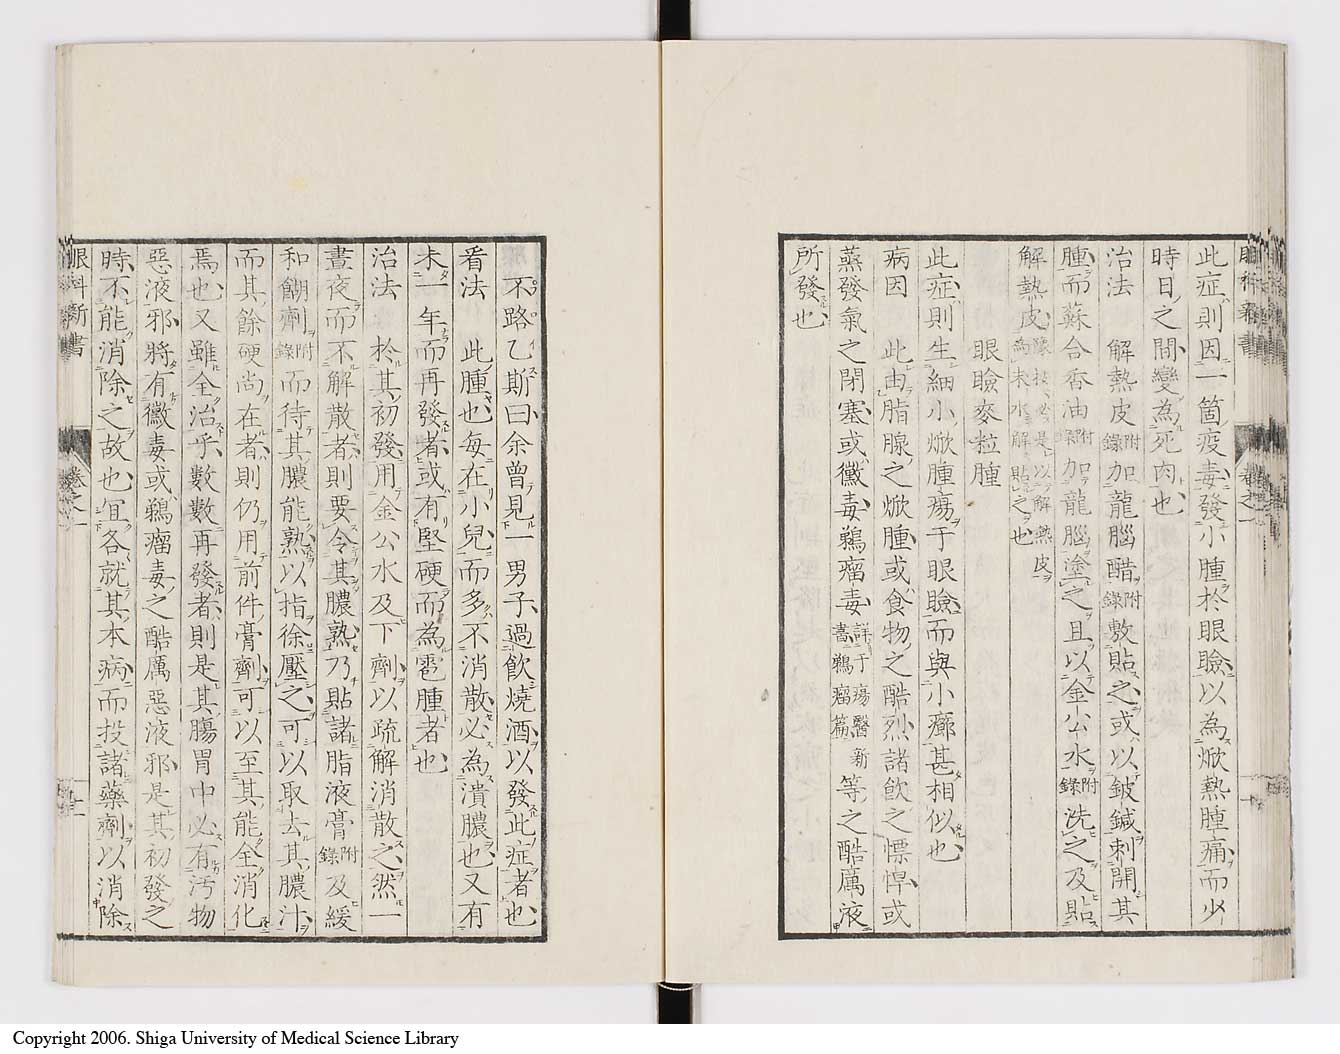 此症則因一箇疫毒發小腫於眼瞼以為焮熱腫痛而少
時日之間變為死肉也
治法　解熱皮附錄加龍腦醋附錄敷貼之或以鈹鍼刺開其
腫而蘇合香油附錄加龍腦塗之且以金公水附錄洗之及貼
解熱皮
之也
眼瞼麥粒腫
此症則生細小焮腫瘍于眼瞼而與小癤甚相似也
病因　此由脂腺之焮腫或食物之酷烈諸飲之慓悍或
蒸發氣之閉塞或黴毒鵜瘤毒詳于瘍醫新書鵜瘤篇等之酷厲液
所發也
眼科新書
卷之一
不路乙斯曰余曾見一男子過飲燒酒以發此症者也
看法　此腫也每在小兒而多不消散必為潰膿也又有
未一年而再發者或有堅硬而為雹腫者也
治法　於其初發用金公水及下劑以疏解消散之然一
晝夜而不解散者則要令其膿熟乃貼諸脂液膏附錄及緩
和餬劑附錄而待其膿能熟以指徐壓之可以取去其膿汁
而其餘硬尚在者則仍用前件膏劑可以至其能全消化
焉也又雖全治乎數數再發者則是其腸胃中必有汚物
惡液邪將有黴毒或鵜瘤毒之酷厲惡液邪是其初發之
時不能消除之故也宜各就其本病而投諸藥劑以消除
眼科新書
卷之一
十一
Copyright 2006. Shiga University of Medical Science Library